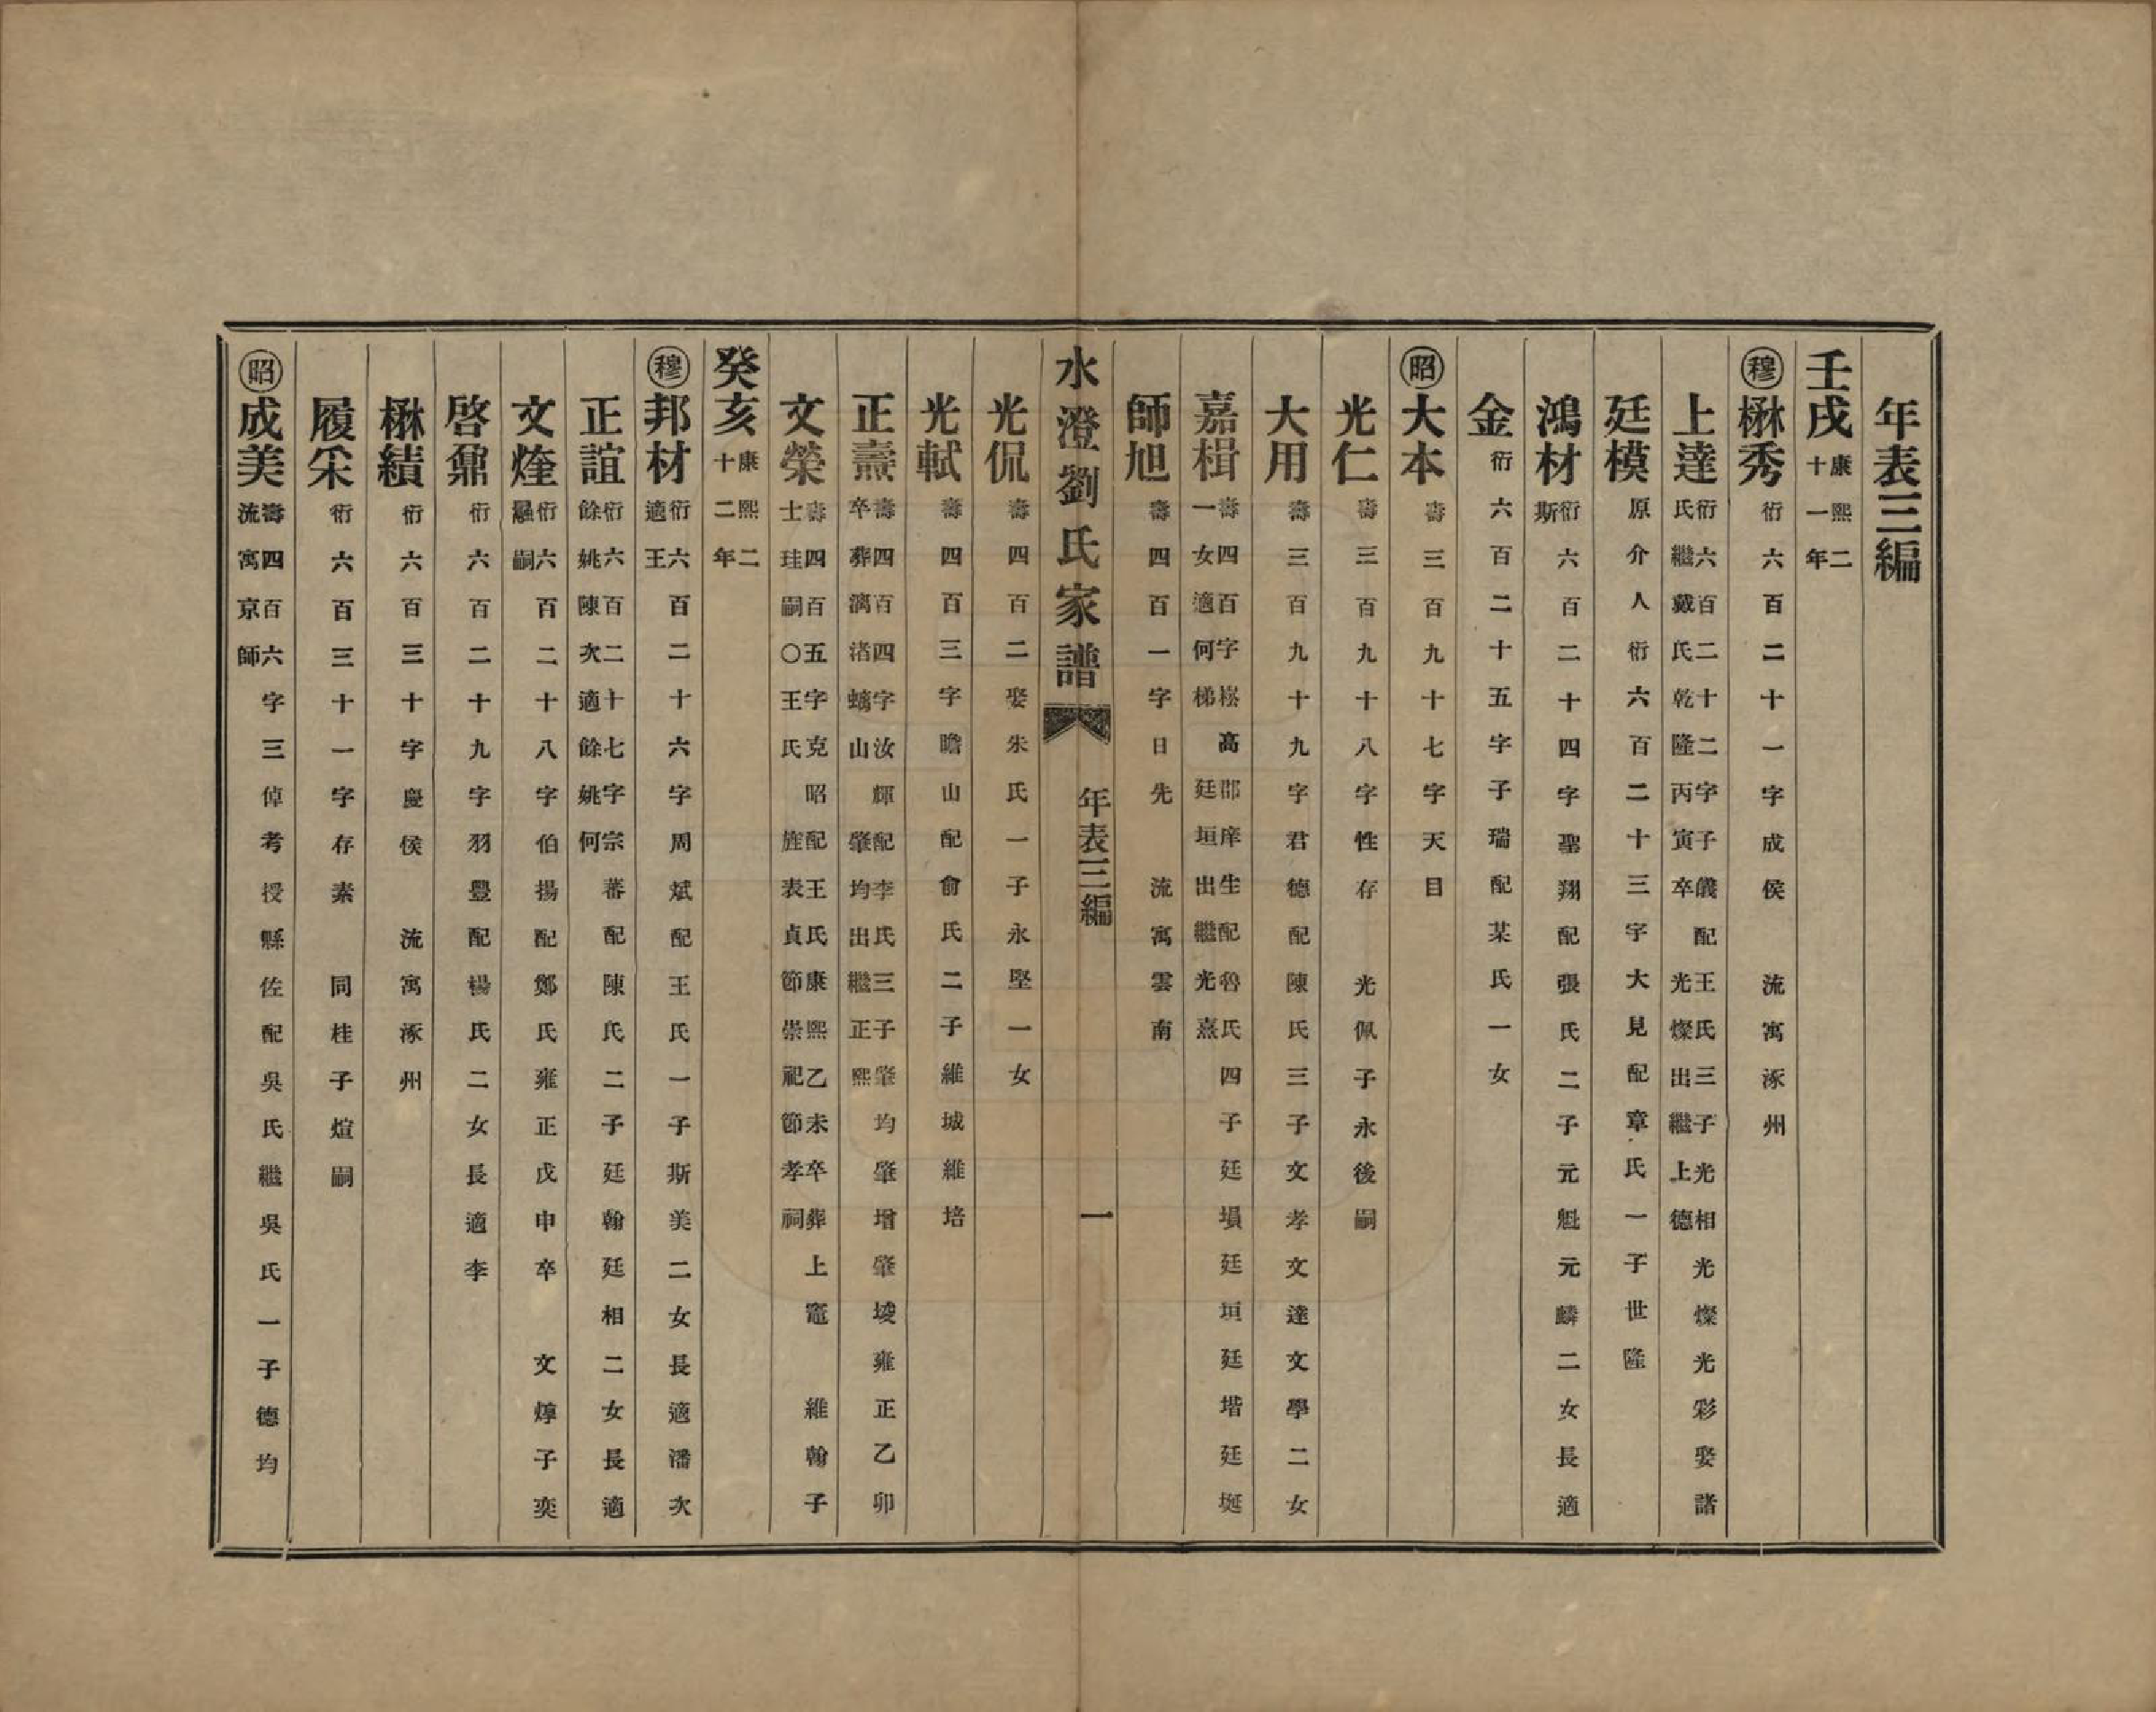 年表三編
壬戌 康熙二十一年
穆 楙秀 衍六百二十一字成侯 流寓涿州
上達 衍六百二十二字子儀配王氏三子光相光燦光彩娶諸氏繼戴氏乾隆丙寅卒 光燦出繼上德
廷模 原介人衍六百二十三字大見配章氏一子世隆
鴻材 衍六百二十四字聖翔配張氏二子元魁元麟二女長適斯
金 衍六百二十五字子瑞配某氏一女
昭 大本 壽三百九十七字天目
光仁 壽三百九十八字性存 光佩子永後嗣
大用 壽三百九十九字君德配陳氏三子文孝文達文學二女
嘉楫 壽四百字崧高郡庠生配魯氏四子廷塤廷垣廷堦廷埏一女適何梯 廷垣出繼光熹
師旭 壽四百一字日先 流寓雲南
水澄劉氏家譜 年表三編 一
光侃 壽四百二娶朱氏一子永堅一女
光軾 壽四百三字瞻山配俞氏二子維城維培
正燾 壽四百四字汝輝配李氏三子肇均肇增肇堎雍正乙卯卒葬漓渚螭山 肇均出繼正熙
文榮 壽四百五字克昭配王氏康熙乙未卒葬上竈 維翰子士珪嗣〇王氏旌表貞節崇祀節孝祠
癸亥 康熙二十二年
穆 邦材 衍六百二十六字周斌配王氏一子斯美二女長適潘次適王
正誼 衍六百二十七字宗蕃配陳氏二子廷翰廷相二女長適餘姚陳次適餘姚何
文煃 衍六百二十八字伯揚配鄭氏雍正戊申卒 文焞子奕 嗣
啓鼐 衍六百二十九字羽豐配楊氏二女長適李
楙績 衍六百三十字慶侯 流寓涿州
履采 衍六百三十一字存素 同桂子煊嗣
昭 成美 壽四百六字三倬考授縣佐配吳氏繼吳氏一子德均流寓京師